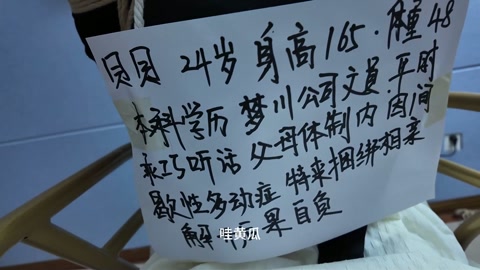 贝贝 24岁 身高165.体重48
本科学历 梦川公司文员.平时
乖巧听话 父母体制内.因间
歇性多动症 特来捆绑相亲
解 后果自负
哇黄瓜